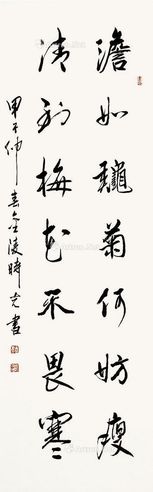 澹如龝菊何妨瘦
清到梅花不畏寒
甲子仲春金陵時書